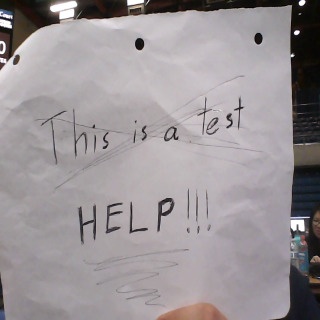 This is a test
HELP!!!